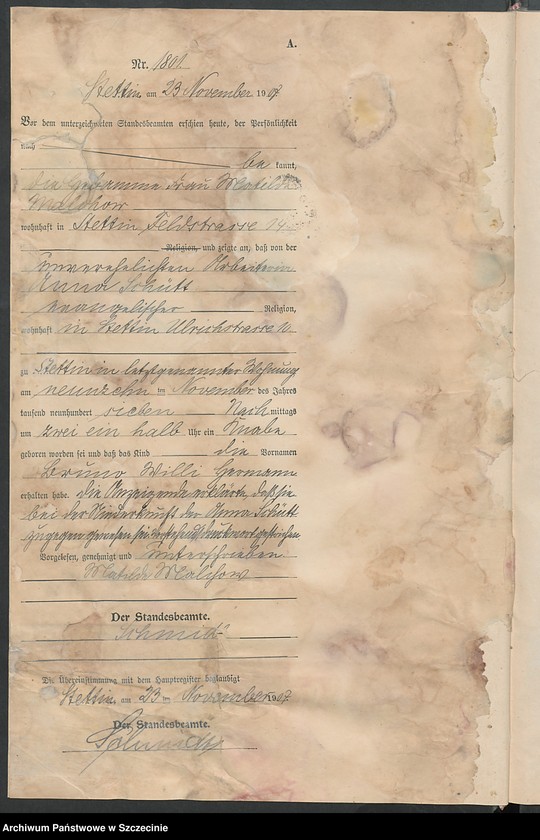 A.
Nr. 1801.
Stettin am 23 November 1907
Vor dem unterzeichneten Standesbeamten erschien heute, der Persönlichkeit
nach
be kannt,
die Hebamme Frau Matilde
Malchow
wohnhaft in Stettin Feldstrasse
Religion, und zeigte an, daß von der
unverehelichten Arbeiterin
Anna Schütt
evangelischer Religion,
wohnhaft in Stettin Ulrichstrasse 10
zu Stettin in letztgenannter Wohnung
am neunzehn im November des Jahres
tausend neunhundert sieben Nach mittags
um zwei ein halb Uhr ein Knabe
geboren worden sei und daß das Kind die Vornamen
Bruno Willi Hermann
erhalten habe. Die Anzeigende erklärte, daß sie
bei der Niederkunft der Anna Schütt
zugegen gewesen sei. Druckwort gestrichen
Vorgelesen, genehmigt und unterschrieben.
Matilde Malchow
Der Standesbeamte.
Schmidt
Die Übereinstimmung mit dem Hauptregister beglaubigt
Stettin am 23 im November 1907
Der Standesbeamte.
Schmidt
Archiwum Państwowe w Szczecinie